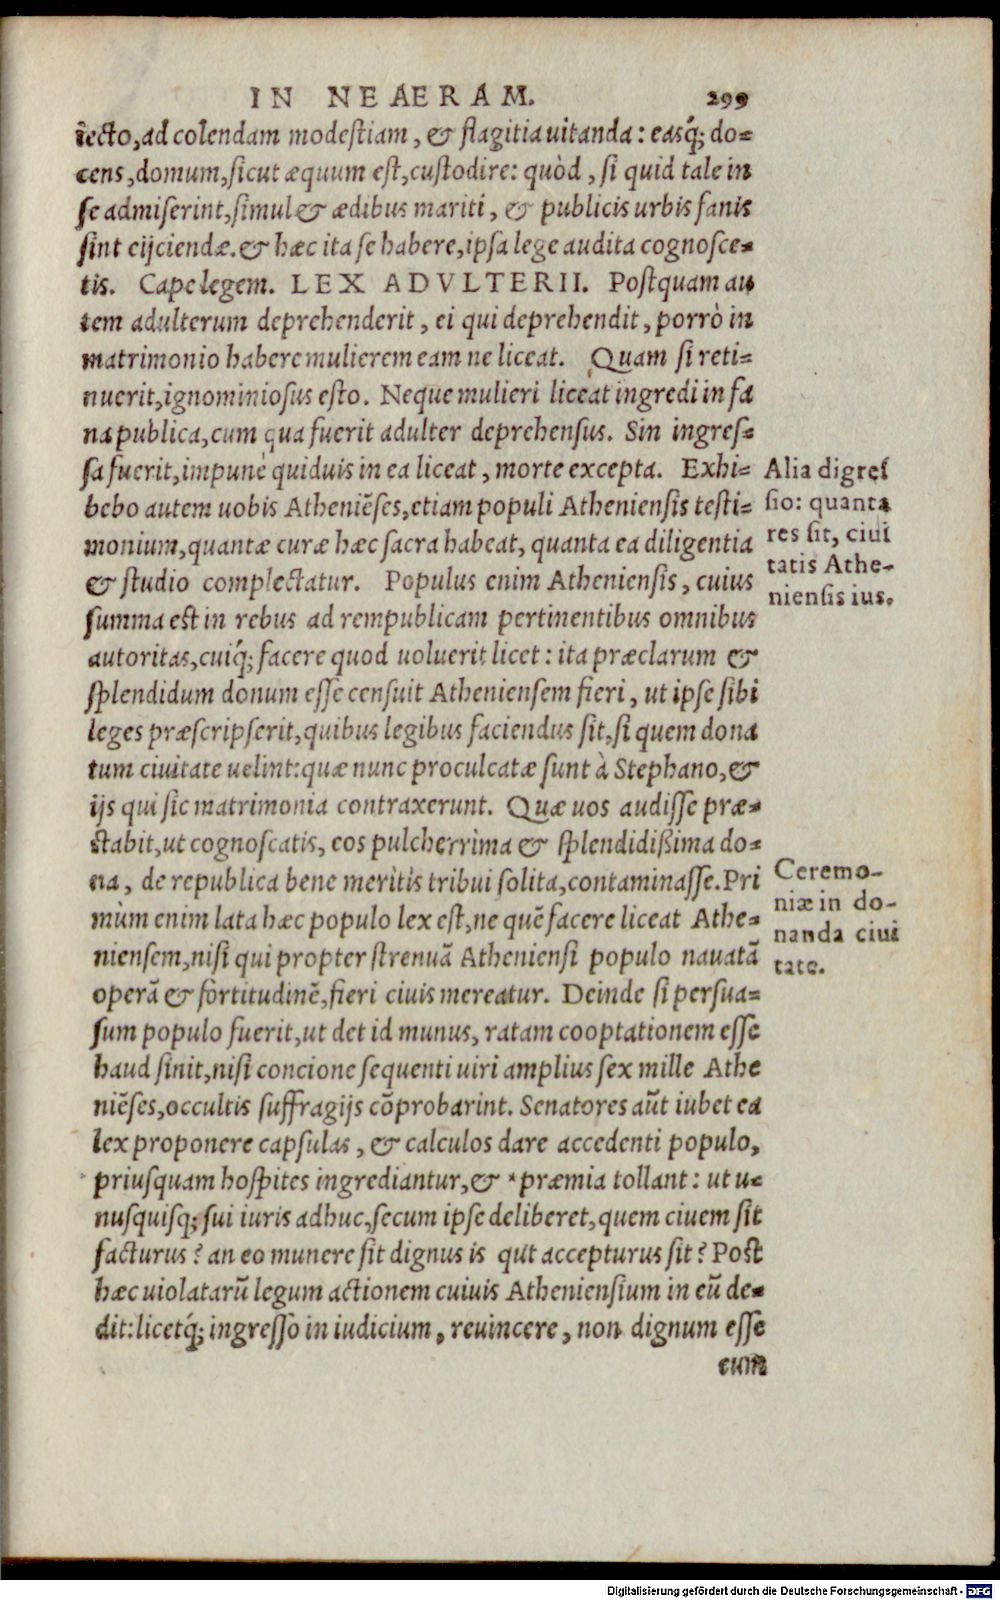 IN NEAERAM. 299
iecto, ad colendam modestiam, & flagitia uitanda: easq́; do=
cens, domum, sicut æquum est, custodire: quòd, si quid tale in
se admiserint, simul & ædibus mariti, & publicis urbis fanis
sint eijciendæ. & hæc ita se habere, ipsa lege audita cognosce=
tis. Cape legem. LEX ADVLTERII. Postquam au
tem adulterum deprehenderit, ei qui deprehendit, porrò in
matrimonio habere mulierem eam ne liceat. Quam si reti=
nuerit, ignominiosus esto. Neque mulieri liceat ingredi in fa
na publica, cum qua fuerit adulter deprehensus. Sin ingres=
sa fuerit, impunè quiduis in ea liceat, morte excepta. Exhi=
bebo autem uobis Atheniẽses, etiam populi Atheniensis testi=
monium, quantæ curæ hæc sacra habeat, quanta ea diligentia
& studio complectatur. Populus enim Atheniensis, cuius
summa est in rebus ad rempublicam pertinentibus omnibus
autoritas, cuiq́; facere quod uoluerit licet: ita præclarum &
splendidum donum esse censuit Atheniensem fieri, ut ipse sibi
leges præscripserit, quibus legibus faciendus sit, si quem dona
tum ciuitate uelint: quæ nunc proculcatæ sunt à Stephano, &
ijs qui sic matrimonia contraxerunt. Quæ uos audisse præ=
stabit, ut cognoscatis, eos pulcherrima & splendidißima do=
na, de republica bene meritis tribui solita, contaminasse. Pri
mùm enim lata hæc populo lex est, ne quẽ facere liceat Athe=
niensem, nisi qui propter strenuã Atheniensi populo nauatã
operã & fortitudinẽ, fieri ciuis mereatur. Deinde si persua=
sum populo fuerit, ut det id munus, ratam cooptationem esse
haud sinit, nisi concione sequenti uiri amplius sex mille Athe
niẽses, occultis suffragijs cõprobarint. Senatores aũt iubet ea
lex proponere capsulas, & calculos dare accedenti populo,
priusquam hospites ingrediantur, & *præmia tollant: ut u=
nusquisq; sui iuris adhuc, secum ipse deliberet, quem ciuem sit
facturus? an eo munere sit dignus is qui accepturus sit? Post
hæc uiolatarũ legum actionem cuiuis Atheniensium in eũ de=
dit: licetq́; ingresso in iudicium, reuincere, non dignum esse
eum
Alia digreſ
sio: quanta
res sit, ciui
tatis Athe-
niensis ius.
Ceremo-
niæ in do-
nanda ciui
tate.
Digitalisierung gefördert durch die Deutsche Forschungsgemeinschaft - DFG